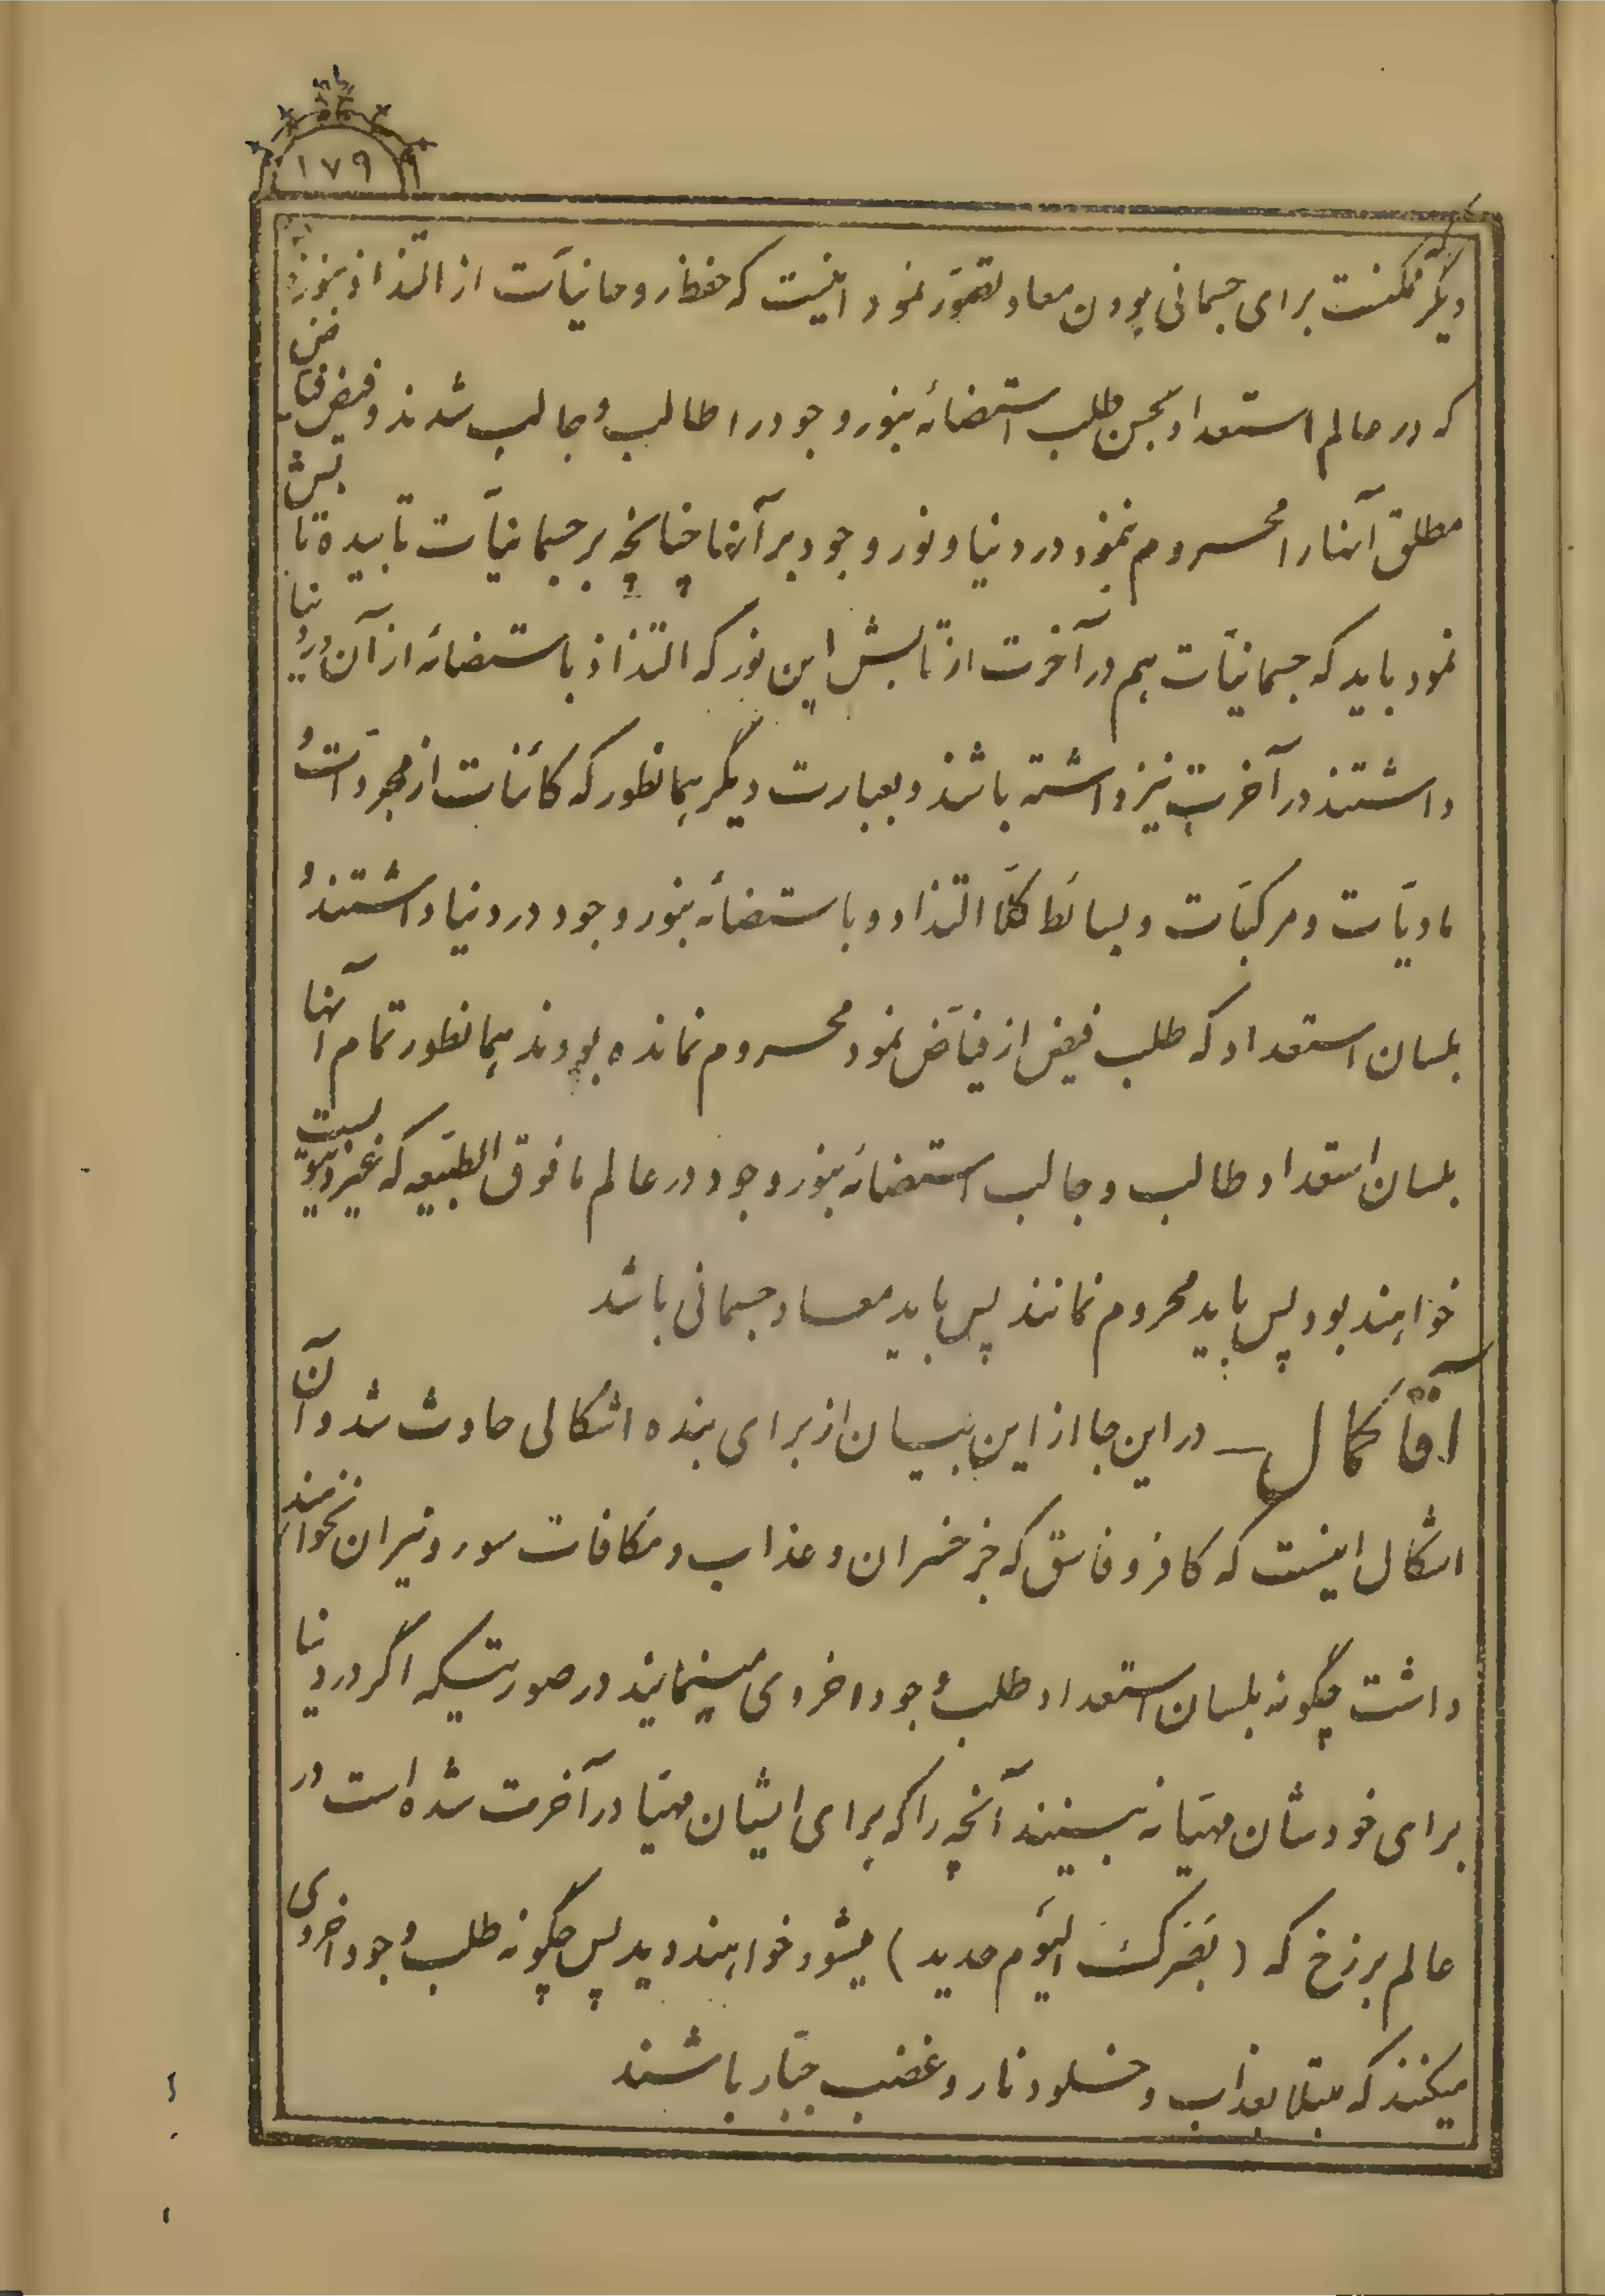 ۱۷۹
دیگر ممکنست برای جسمانی بودن معاد تصوّر نمود اینست که حفظ روحانیّات از التذاذ بنور
که در عالم استعداد بحسن طلب استضائه بنور وجود را طالب و جالب شدند و فیض فیّاض
مطلق آنها را محروم ننمود در دنیا و نور وجود بر آنها چنانچه بر جسمانیّات تابیده تابش
نمود باید که جسمانیّات هم در آخرت از تابش این نور که التذاذ باستضائه از آن در دنیا
داشتند در آخرت نیز داشته باشند و بعبارت دیگر همانطور که کائنات از مجرّدات و
مادیّات و مرکبّات و بسائط کلّا التذاذ و باستضائه بنور وجود در دنیا داشتند و
بلسان استعداد که طلب فیض از فیّاض نمود محروم نمانده بودند همانطور تمام آنها
بلسان استعداد طالب و جالب استضائه بنور وجود در عالم مافوق الطبیعه که غیر دنیویست
خواهند بود پس باید محروم نمانند پس باید معاد جسمانی باشد
آقا کمال ـ در این جا از این بیان از برای بنده اشکالی حادث شد و آن
اشکال اینست که کافر و فاسق که جز خسران و عذاب و مکافات سوء و نیران نخواهند
داشت چگونه بلسان استعداد طلب وجود اخروی مینمایند در صورتیکه اگر در دنیا
برای خودشان مهیّا نه بینند آنچه را که برای ایشان مهیّا در آخرت شده است در
عالم برزخ که (بَصَرُکَ الیَوم حدید) میشود خواهند دید پس چگونه طلب وجود اخروی
میکنند که مبتلا بعذاب و خلود نار و غضب جبّار باشند